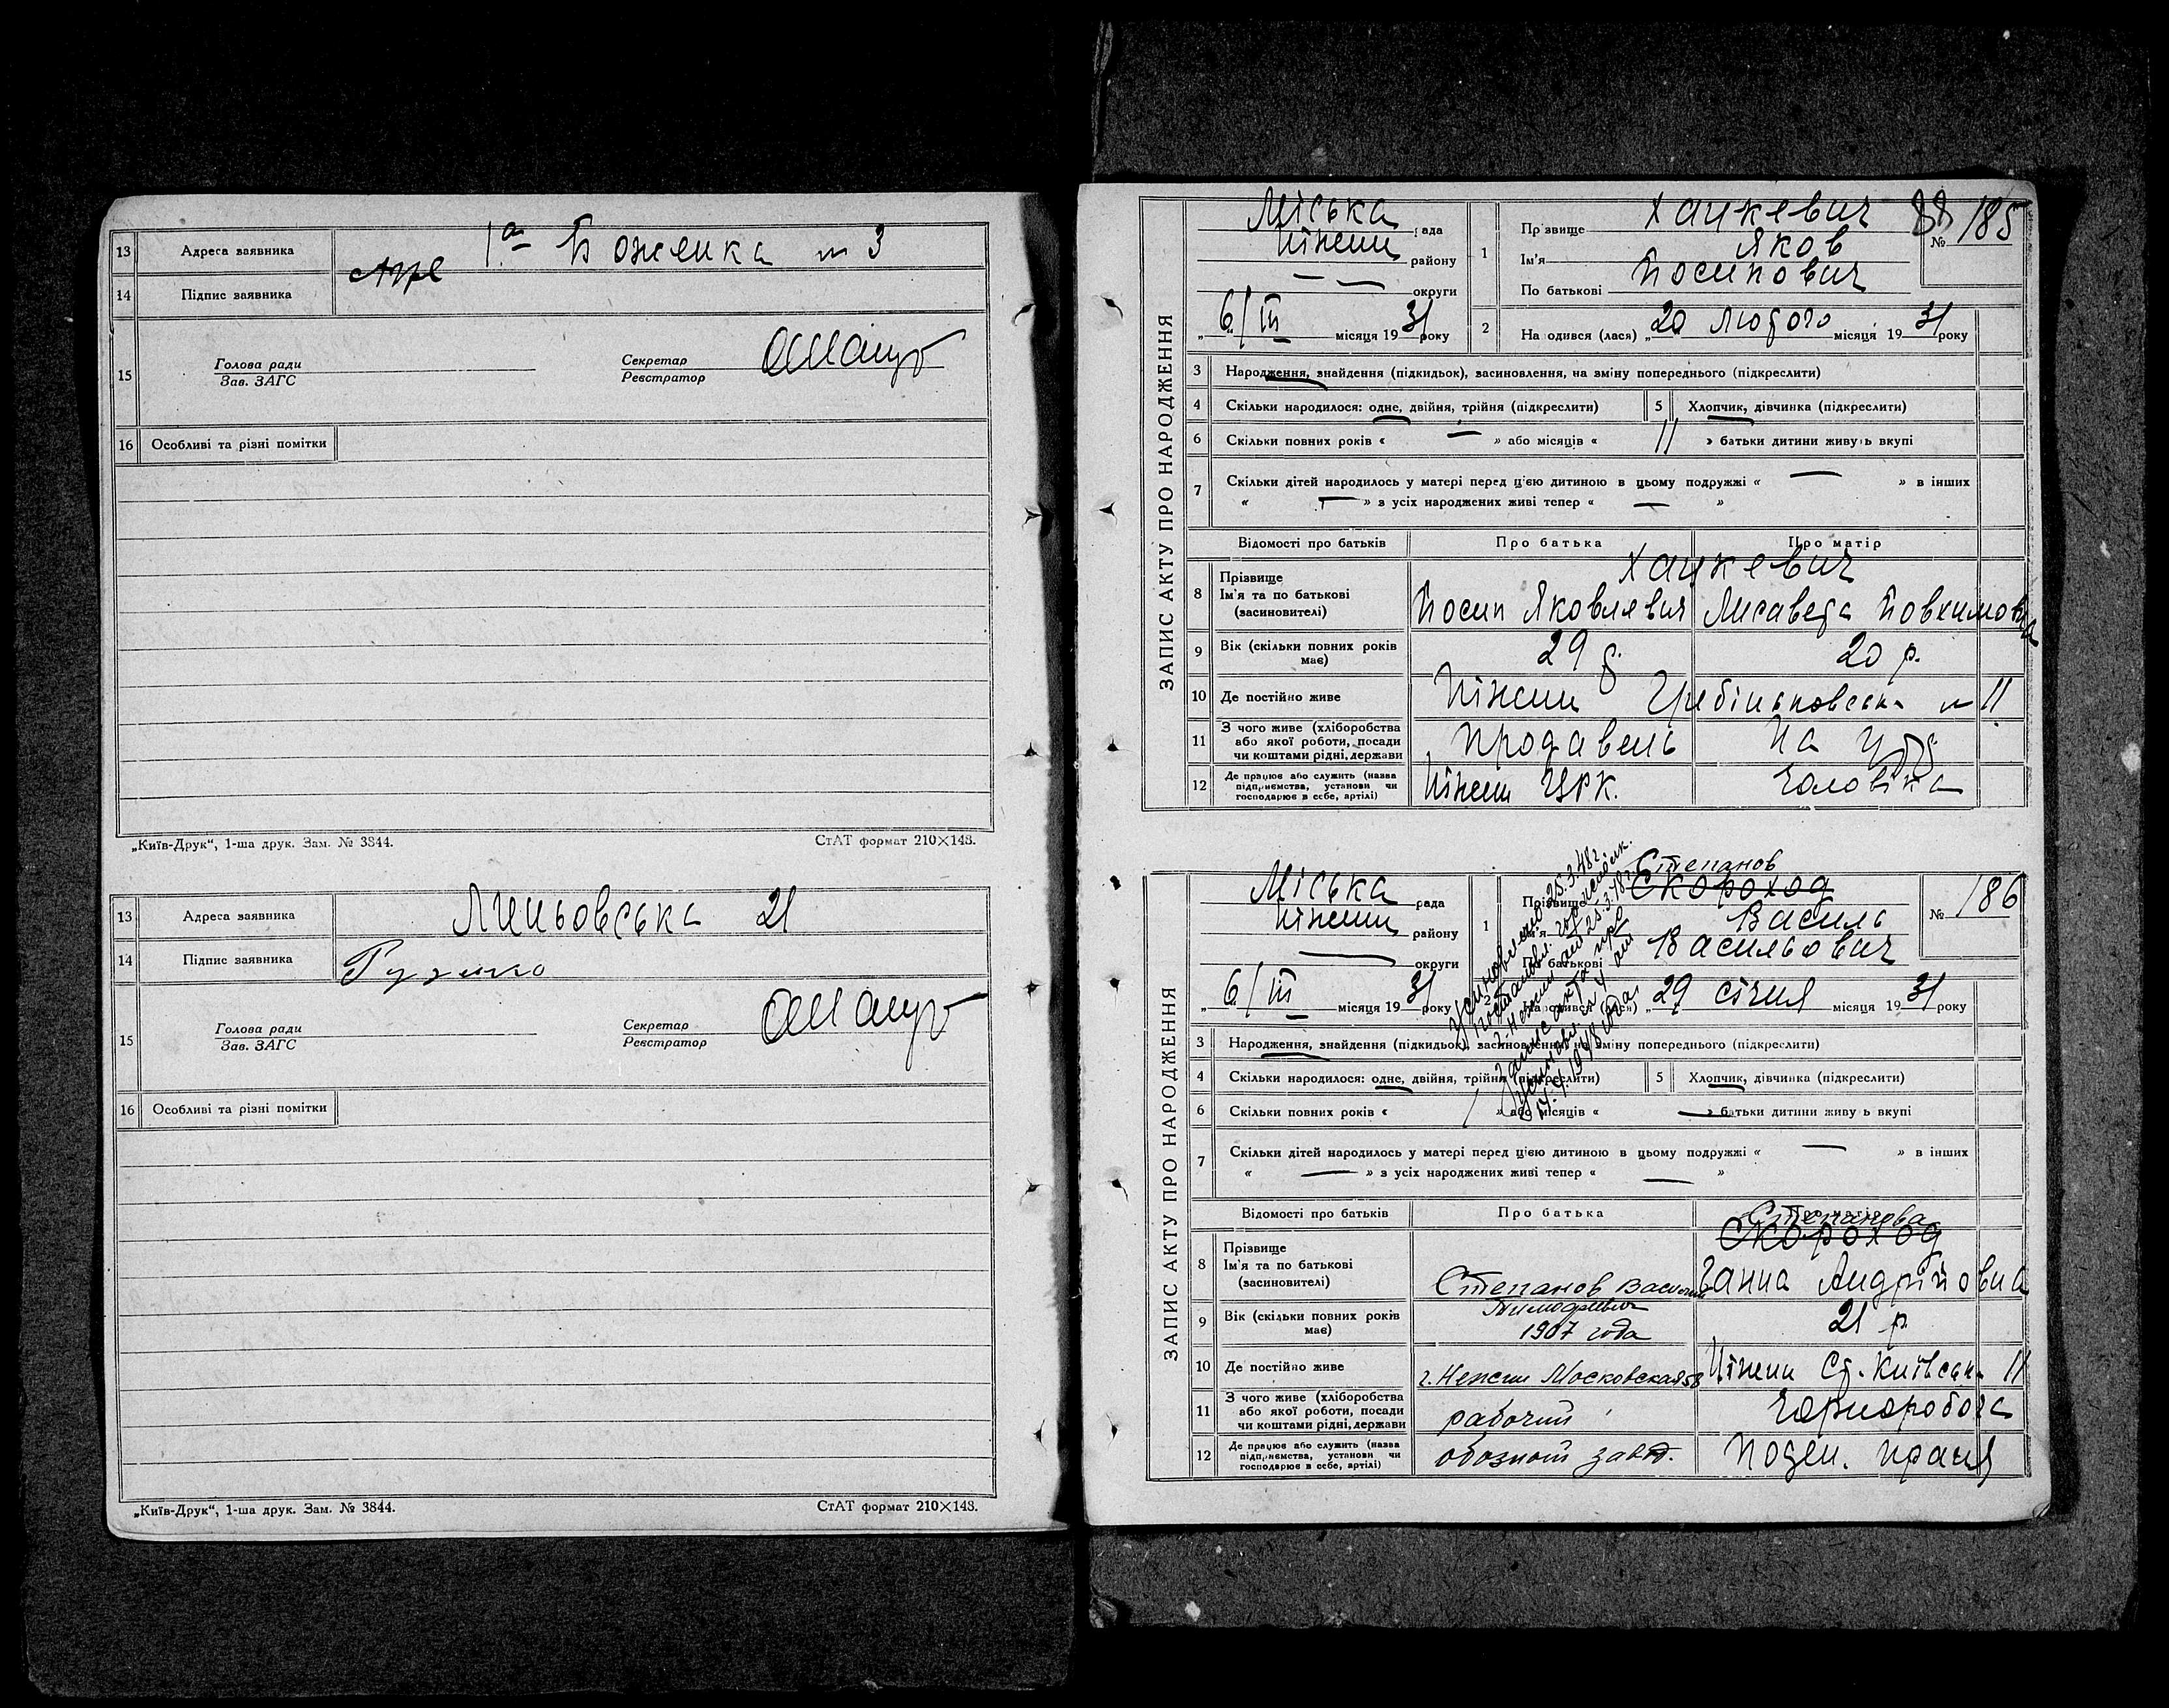 13 Адреса заявника 1а Боженка № 3
14 Підпис заявника
15 Голова ради
Зав. ЗАГС
Секретар
Реєстратор
16 Особливі та різні помітки
„Київ-Друк“, 1-ша друк. Зам. № 3844. СтАТ формат 210×148.
13 Адреса заявника 21
14 Підпис заявника
15 Голова ради
Зав. ЗАГС
Секретар
Реєстратор
16 Особливі та різні помітки
„Київ-Друк“, 1-ша друк. Зам. № 3844. СтАТ формат 210×148.
ЗАПИС АКТУ ПРО НАРОДЖЕННЯ
Міська рада
Ніжин району
округи
„ 6/III місяця 1931 року
1 Прізвище Хацкевич
Ім'я Яков
По батькові Йосипович
№ 185
2 Народився (лася) „ 20 Лютого місяця 1931 року
3 Народження, знайдення (підкидьок), засиновлення, на зміну попереднього (підкреслити)
4 Скільки народилося: одне, двійня, трійня (підкреслити) 5 Хлопчик, дівчинка (підкреслити)
6 Скільки повних років « — » або місяців « 11 » батьки дитини живуть вкупі
7 Скільки дітей народилось у матері перед цією дитиною в цьому подружжі « — » в інших
« — » з усіх народжених живі тепер « — »
Відомості про батьків Про батька Про матір
Хацкевич
8 Прізвище
Ім'я та по батькові
(засиновителі)
Йосип Яковлевич Лисавета
9 Вік (скільки повних років має) 29 р. 20 р.
10 Де постійно живе Ніжин № 11
11 З чого живе (хліборобства
або якої роботи, посади
чи коштами рідні, держави
продавець На утр
12 Де працює або служить (назва
підприємства, установи чи
господарює в себе, артілі)
Ніжин ЦРК. Чоловіка
ЗАПИС АКТУ ПРО НАРОДЖЕННЯ
Міська рада
Ніжин району
округи
„ 6/III місяця 1931 року
Степанов
1 Прізвище Скороход
Ім'я Василь
По батькові Васильович
№ 186
2 Народився (лася) „ 29 січня місяця 1931 року
Усиновлено 25.3.48 г.
25.3.48 г.
1948 года
3 Народження, знайдення (підкидьок), засиновлення, на зміну попереднього (підкреслити)
4 Скільки народилося: одне, двійня, трійня (підкреслити) 5 Хлопчик, дівчинка (підкреслити)
6 Скільки повних років « / » або місяців « — » батьки дитини живуть вкупі
7 Скільки дітей народилось у матері перед цією дитиною в цьому подружжі « — » в інших
« — » з усіх народжених живі тепер « — »
Відомості про батьків Про батька Про матір
Степанова
Скороход
8 Прізвище
Ім'я та по батькові
(засиновителі)
Степанов Василий Ганна Андріївна
Тимофеевич
9 Вік (скільки повних років має) 1907 года 21 р.
10 Де постійно живе г. Нежин Московская 58 Ніжин Ст. Київськ. 11
11 З чого живе (хліборобства
або якої роботи, посади
чи коштами рідні, держави
рабочий Чорноробоча
12 Де працює або служить (назва
підприємства, установи чи
господарює в себе, артілі)
обозный завод. Поден. праця